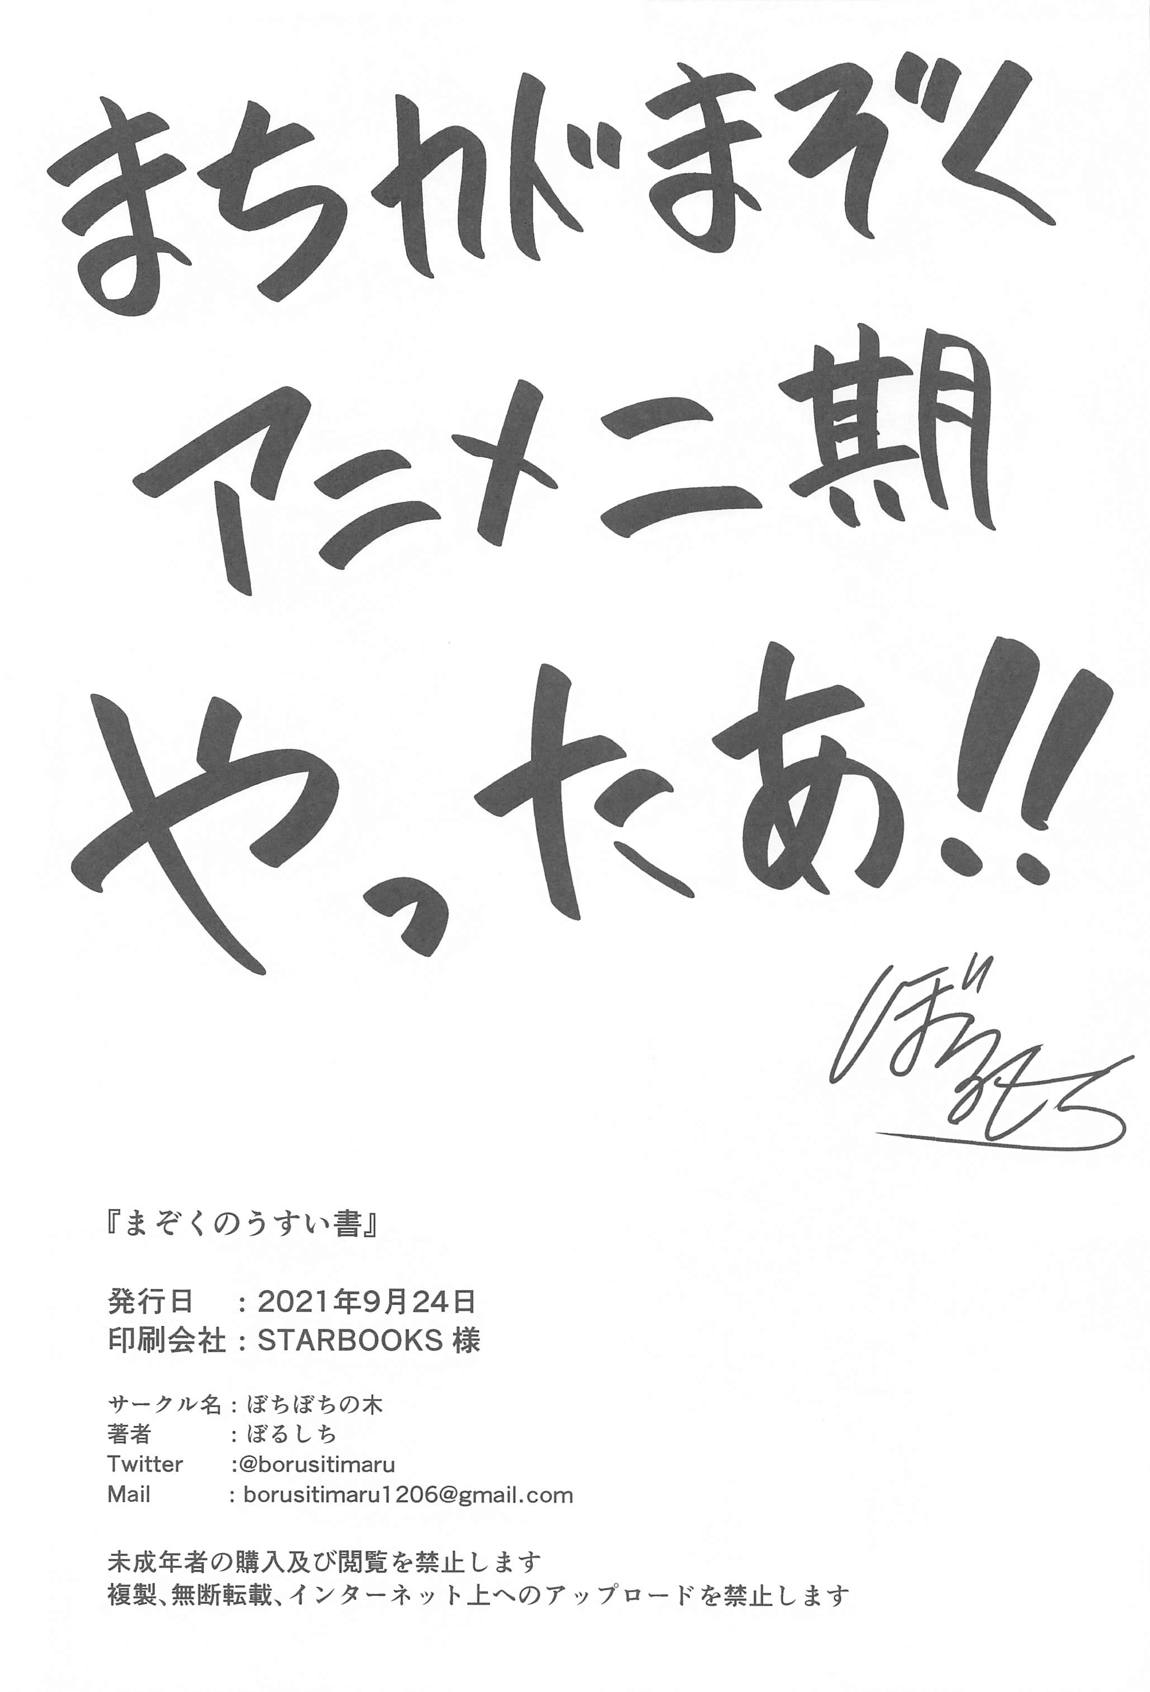 まちカドまぞく
アニメ二期
やったあ!!
ぼるしち
『まぞくのうすい書』
発行日　: 2021年9月24日
印刷会社 : STARBOOKS 様
サークル名 : ぼちぼちの木
著者　　　: ぼるしち
Twitter　:@borusitimaru
Mail　　: borusitimaru1206@gmail.com
未成年者の購入及び閲覧を禁止します
複製､無断転載､インターネット上へのアップロードを禁止します